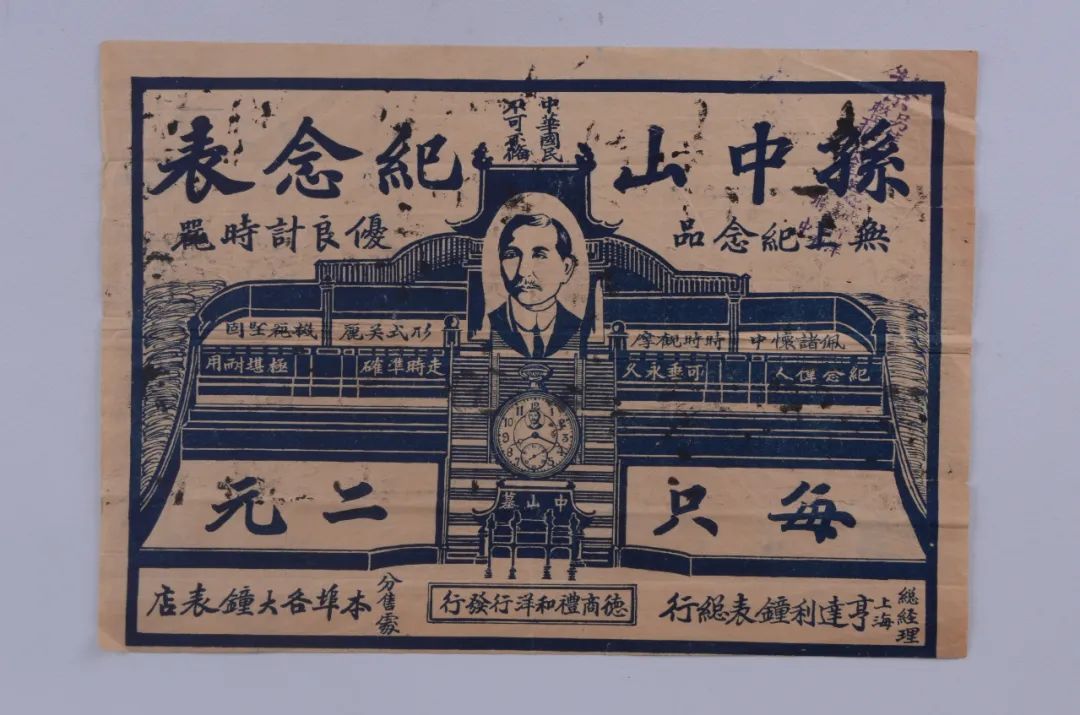 中華國民
不可
孫中山紀念表
無上紀念品
優良計時器
佩諸懷中
時時觀摩
紀念偉人
可垂永久
形式美麗
機器堅固
走時準確
極堪耐用
每只二元
中山墓
總經理
上海
亨達利鐘表總行
德商禮和洋行發行
分售處
本埠各大鐘表店